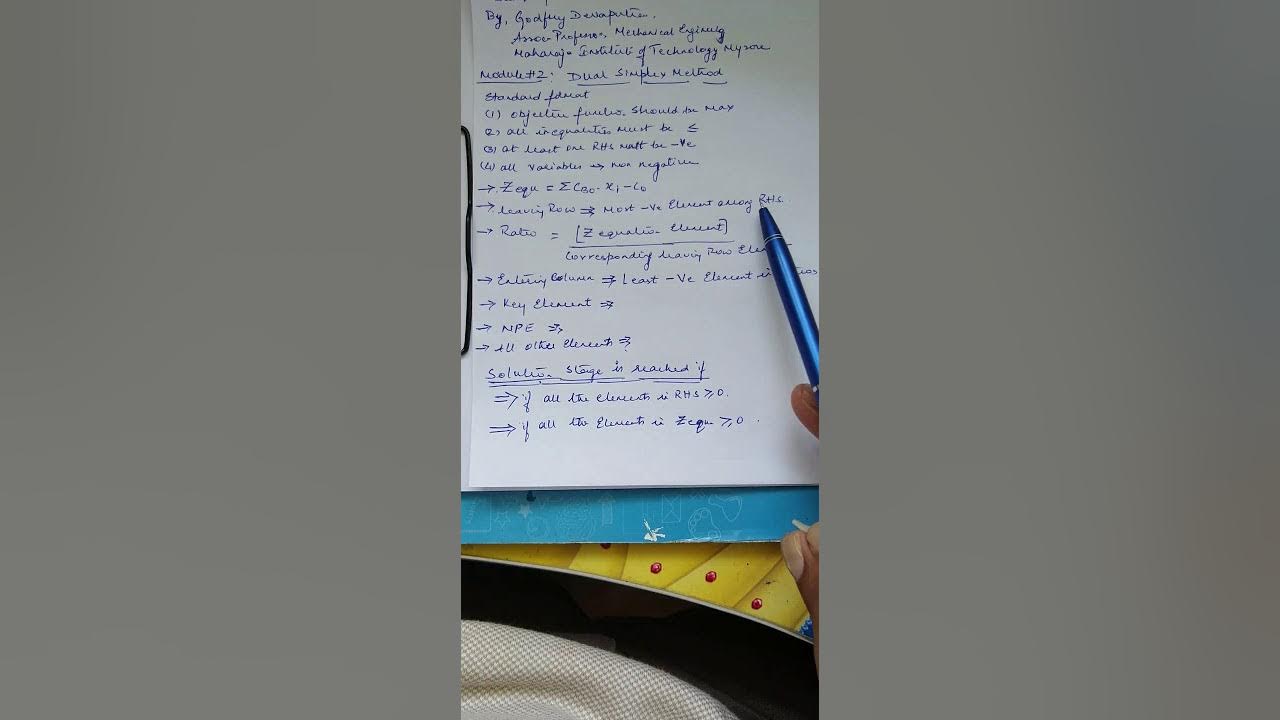 By, Godfrey Devaputra.
Assoc Professor, Mechanical Engineering
Maharaja Institute of Technology Mysore
Module #2: Dual Simplex Method
Standard format
(1) objective function should be Max
(2) all inequalities must be ≤
(3) at least one RHS must be -Ve
(4) all variables → non negative
→ Z equ = ΣCBo. xi - Co
→ Leaving Row ⇒ Most -Ve Element among RHS.
→ Ratio = [Z equation Element]
Corresponding leaving Row
→ Entering Column ⇒ Least -Ve Element in
→ Key Element ⇒
→ NPE ⇒
→ All other Elements ⇒
Solution Stage is reached if
⇒ if all the elements in RHS ≥ 0.
⇒ if all the Elements in Z equ ≥ 0.